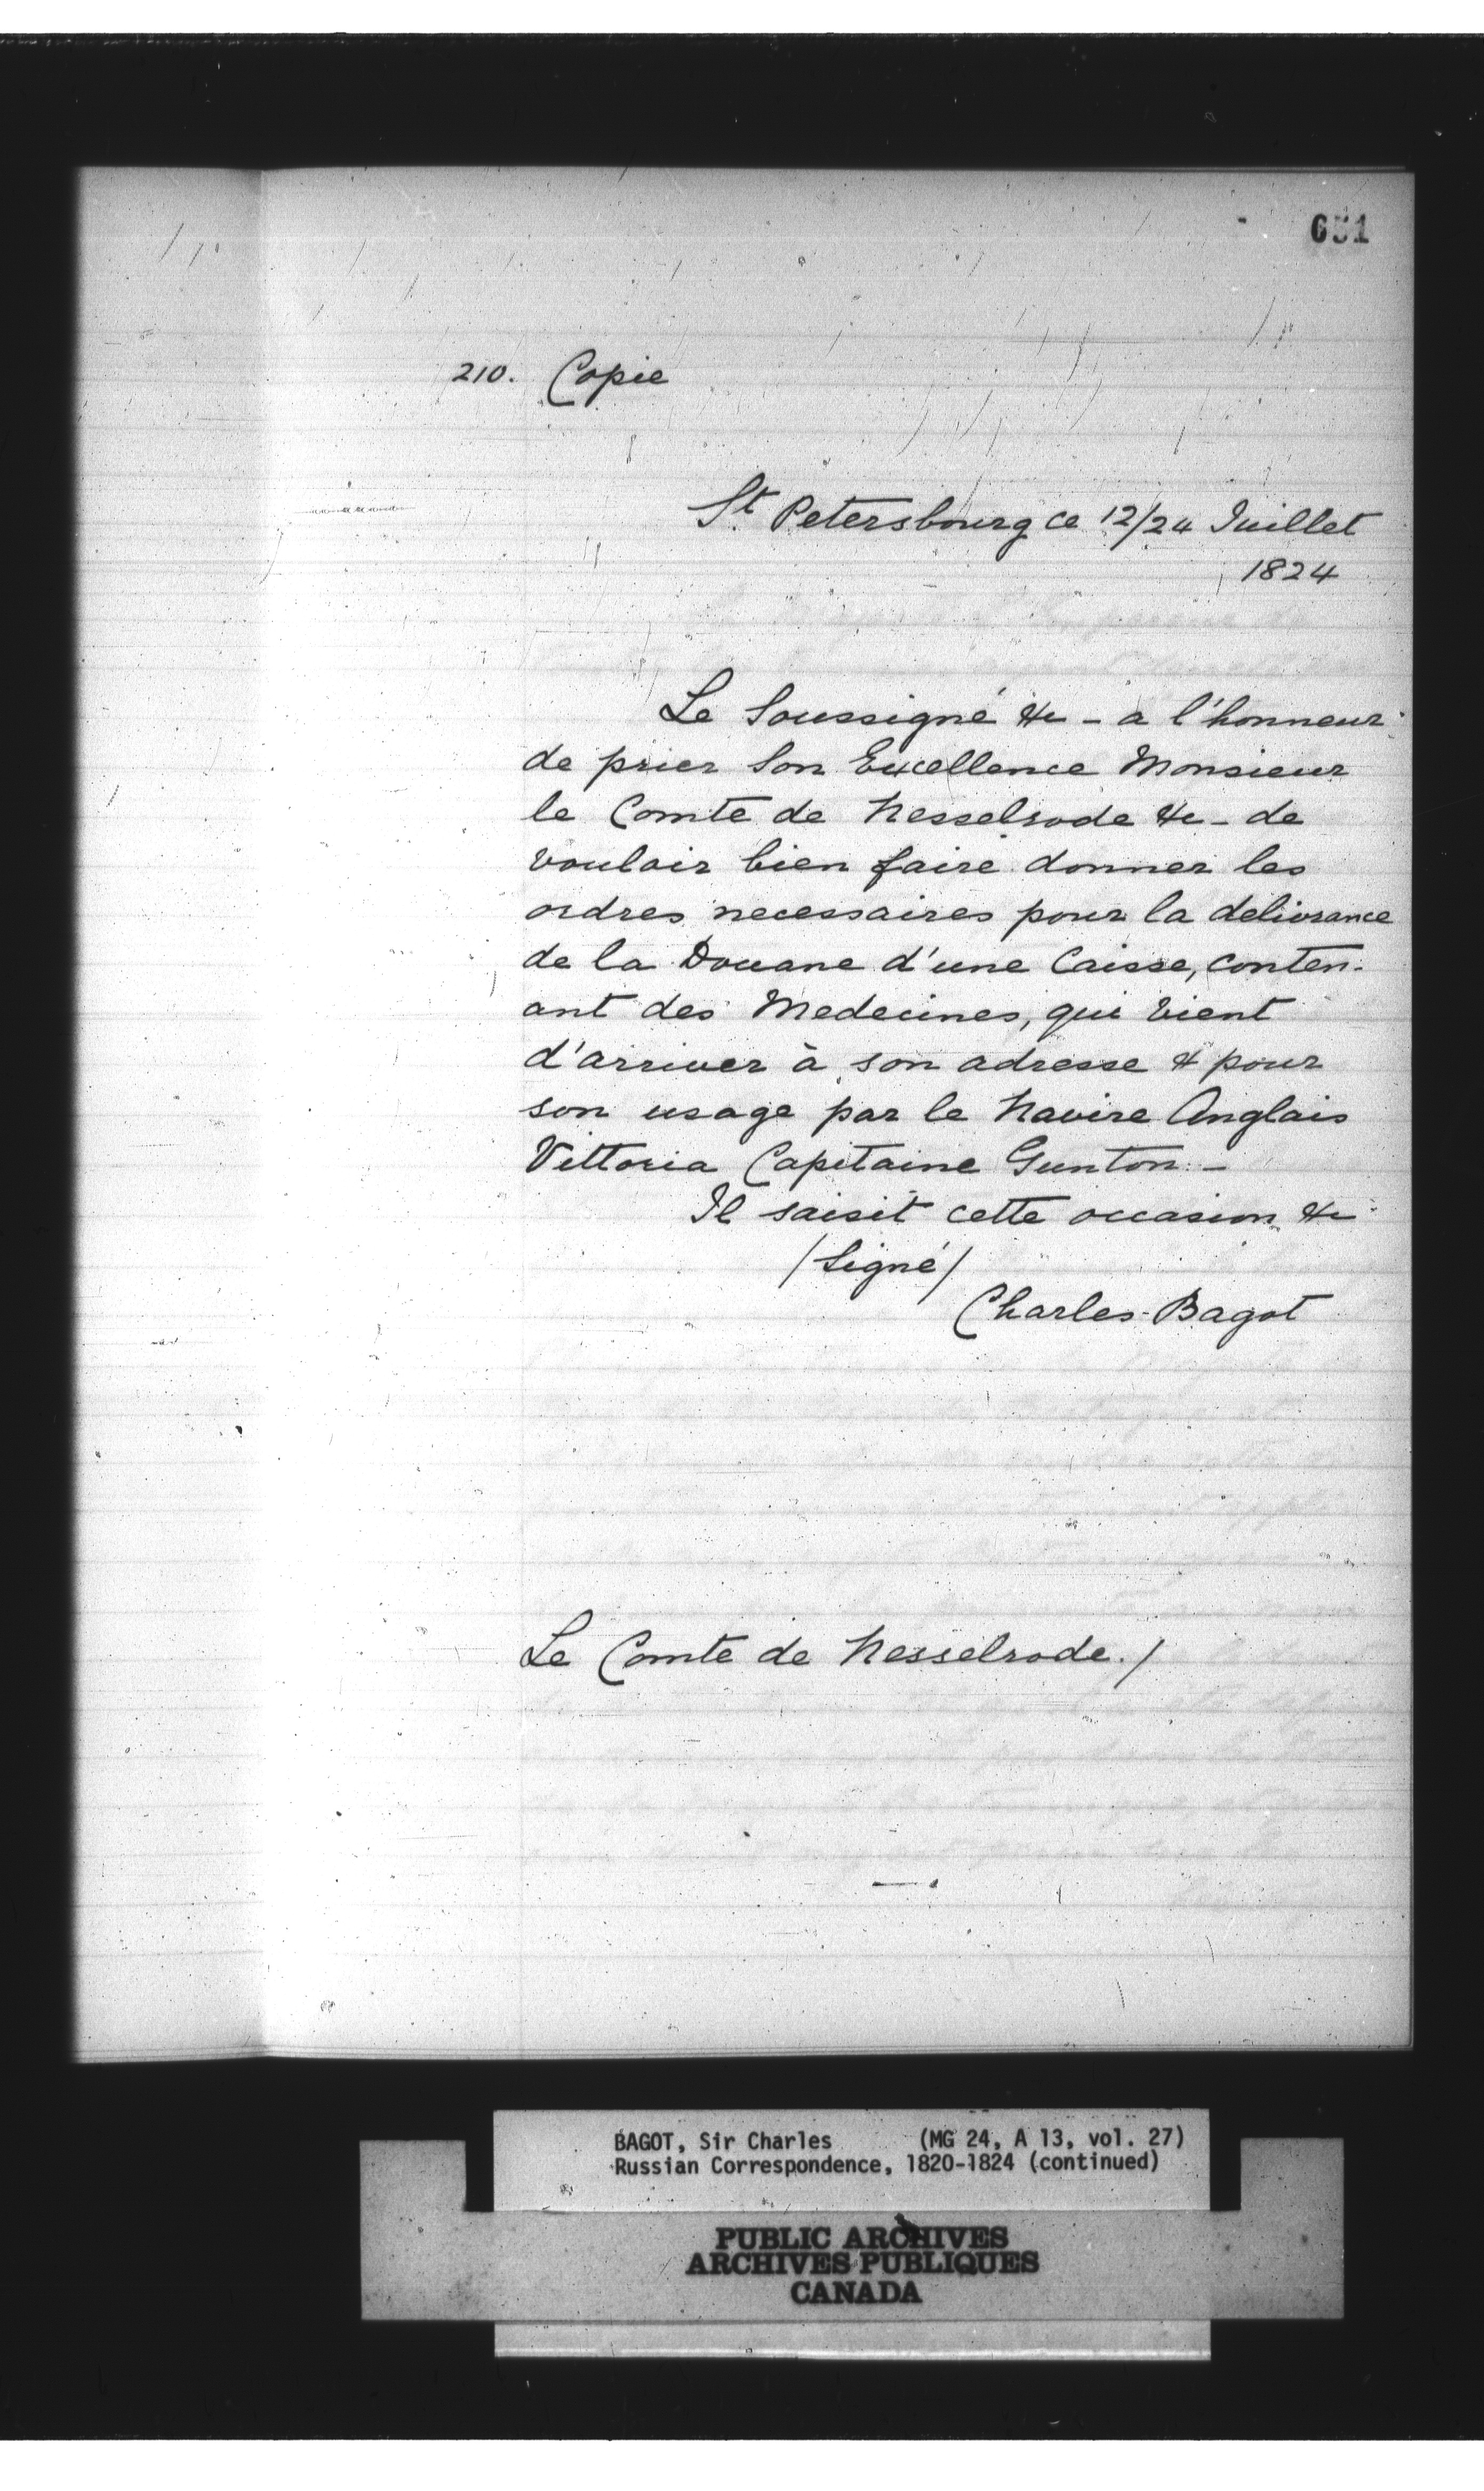 210. Copie
St Petersbourg ce 12/24 Juillet
1824
Le Soussigné &c - a l'honneur
de prier Son Excellence Monsieur
le Comte de Nesselrode &c - de
vouloir bien faire donner les
ordres necessaires pour la delivrance
de la Douane d'une Caisse, conten-
ant des Medecines, qui vient
d'arriver à son adresse & pour
son usage par le Navire Anglais
Vittoria Capitaine Gunton. -
Il saisit cette occasion &c
/Signé/
Charles Bagot
Le Comte de Nesselrode. /
BAGOT, Sir Charles (MG 24, A 13, vol. 27)
Russian Correspondence, 1820-1824 (continued)
PUBLIC ARCHIVES
ARCHIVES PUBLIQUES
CANADA